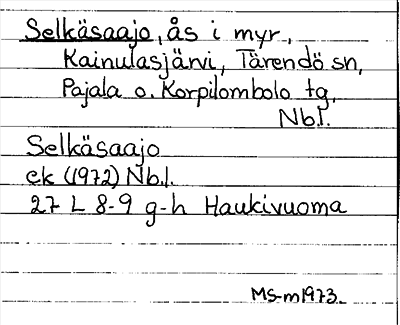 Selkäsaajo, ås i myr,
Kainulasjärvi, Tärendö sn,
Pajala o. Korpilombolo tg,
Nbl.
Selkäsaajo
ek (1972) Nbl.
27 L 8-9 g-h Haukivuoma
MS-m1973